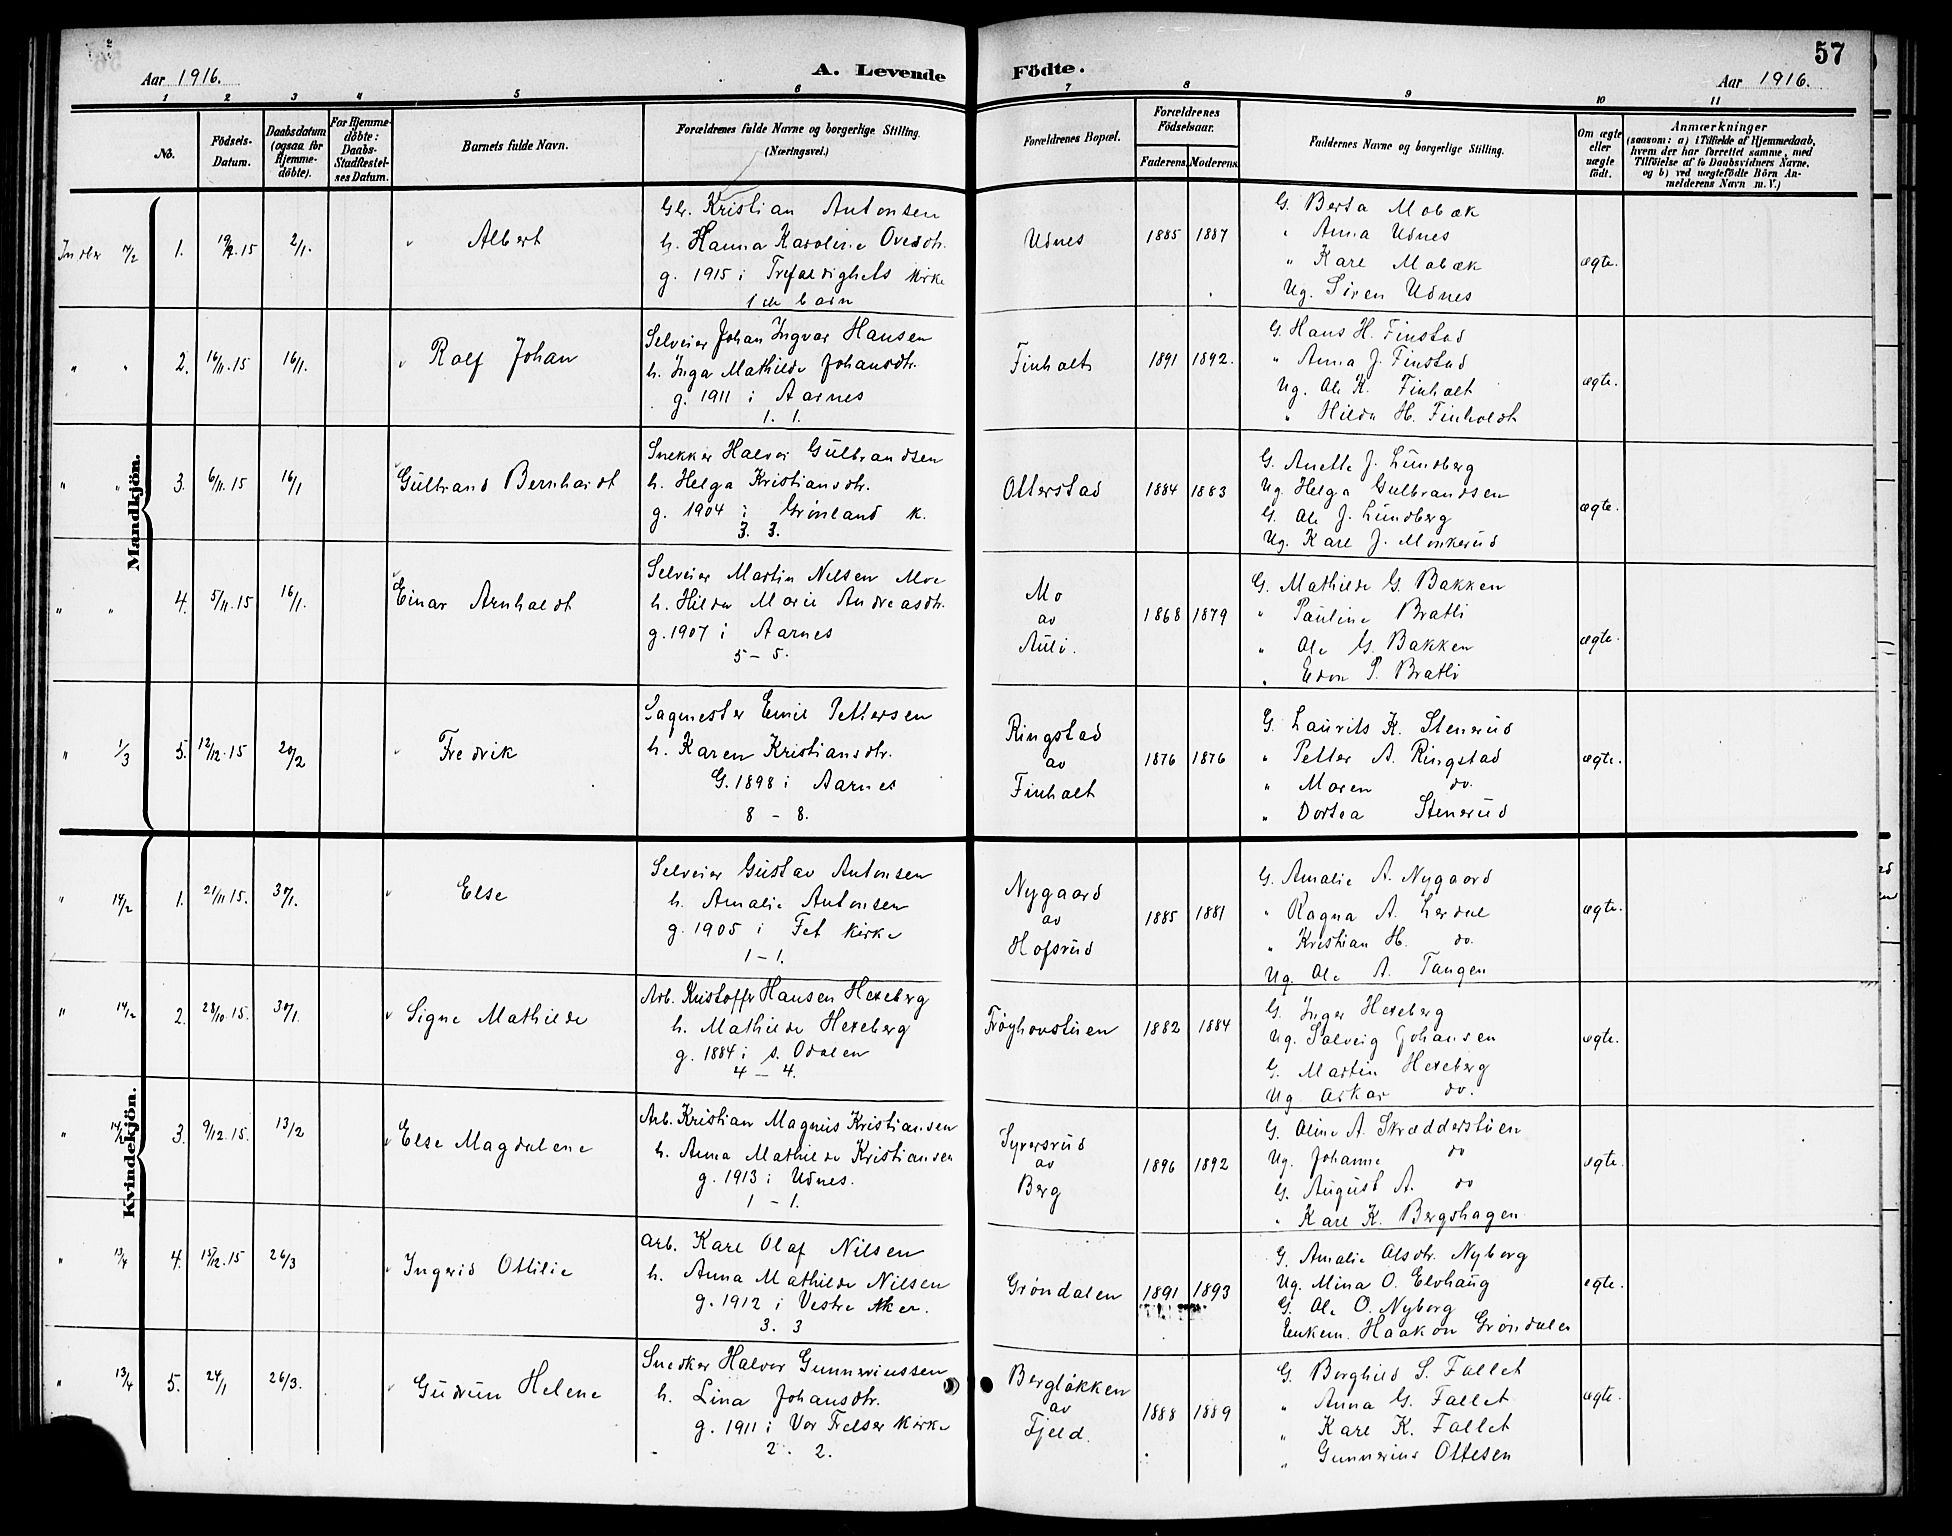 57
Aar 1916. A. Levende Födte. Aar 1916.
1 2 3 4 5 6 7 8 9 10 11
No.
Födsels-
Datum.
Daabsdatum
(ogsaa for
Hjemme-
döbte).
For Hjemme-
döbte:
Daabs-
Stadfestel-
ses Datum.
Barnets fulde Navn.
Forældrenes fulde Navne og borgerlige Stilling.
(Næringsvei.)
Forældrenes Bopæl.
Forældrenes
Födselsaar.
Faderens. Moderens.
Faddernes Navne og borgerlige Stilling.
Om ægte
eller
uægte
födt.
Anmærkninger
(saasom: a) i Tilfælde af Hjemmedaab,
hvem der har forrettet samme, med
Tilföielse af to Daabsvidners Navne,
og b) ved uægtefödte Börn An-
melderens Navn m. V.)
Mandkjön.
Indber 7/2 1. 2/1. Albert
Gb. Kristian Antonsen
h. Hanna Karoline Ovesdtr.
g. 1915 i Trefoldighets kirke
1 de barn
Udnes 1885 1887
G. Berta Mobæk
" Anna Udnes
" Karl Mobæk
Ug. Siren Udnes
ægte.
" " 2. 16/11.15 16/1. Rolf Johan
Selveier Johan Ingvar Hansen
h. Inga Mathilde Johansdtr.
g. 1911 i Aarnes
1. 1.
Finholt 1891 1892.
G. Hans H. Finstad
" Anna J. Finstad
Ug. Ole K. Finholt
" Hilda H. Finholdt
ægte.
" " 3. 6/11.15 16/1 Gulbrand Bernhardt
Snekker Halvor Gulbrandsen
h. Helga Kristiansdtr.
g. 1904 i Grønland k.
3. 3.
Otterstad 1884 1883
G. Anette J. Lundberg
Ug. Helga Gulbrandsen
G. Ole J. Lundberg
Ug. Karl J. Monkerud
ægte.
" " 4. 5/11.15 16/1. Einar Arnholdt
Selveier Martin Nilsen Moe
h. Hilda Marie Andreasdtr.
g. 1907 i Aarnes
5 – 5.
Mo
av
Auli.
1868 1879
G. Mathilde G. Bakken
" Pauline Bratli
" Ole G. Bakken
" Edon P. Bratli
ægte.
" 1/3 5. 12/12.15 20/2 Fredrik
Sagmester Emil Pettersen
h. Karen Kristiansdtr.
G. 1898 i Aarnes
8 – 8.
Ringstad
av
Finholt
1876 1876
G. Laurits K. Stenerud
" Petter A. Ringstad
" Maren do.
" Dortea Stenerud
ægte.
Kvindekjön.
" 14/2 1. 21/11 15. 30/1. Else
Selveier Gustav Antonsen
h. Amalie Antonsen
g. 1905 i Fet kirke
1 – 1.
Nygaard
av
Hofsrud
1885 1881
G. Amalie A. Nygaard
" Ragna A. Lerdal
" Kristian H. do.
Ug. Ole A. Tangen
ægte.
" 14/2 2. 28/10.15. 30/1. Signe Mathilde
Arb. Kristoffer Hansen Hexeberg
h. Mathilde Hexeberg
g. 1884 i s. Odalen
4 – 4.
Frøyhovstuen 1882 1884
G. Inger Hexeberg
Ug. Solveig Johansen
G. Martin Hexeberg
Ug Oskar do.
ægte.
" 14/2 3. 9/12.15. 13/2 Else Magdalene
Arb. Kristian Magnus Kristiansen
h. Anna Mathilde Kristiansen
g. 1913 i Udnes.
1 – 1.
Syversrud
av
Berg
1896 1892
G. Oline A. Skrædderstuen
Ug. Johanne do
G. August A. do
" Karl K. Bergshagen
ægte.
" 13/4 4. 15/12.15 26/3 Ingerid Ottilie
Arb. Karl Olaf Nilsen
h. Anna Mathilde Nilsen
g. 1912 i Vestre Aker.
3. 3
Grøndalen 1891 1893
G. Amalie Olsdtr. Nyborg
Ug. Mina O. Elvhaug
G. Ole O. Nyborg
Enkem. Haakon Grøndalen
ægte.
" 13/4 5. 24/1 26/3. Gudrun Helene
Snedker Halvor Gunneriussen
h. Lina Johansdtr.
g. 1911 i Vor Frelser kirke
2. 2.
Bergløkken
av
Fjeld.
1888 1889
G. Borghild S. Fallet
" Anna G. Fallet
" Karl K. Fallet
" Gunnerius Ottesen
ægte.